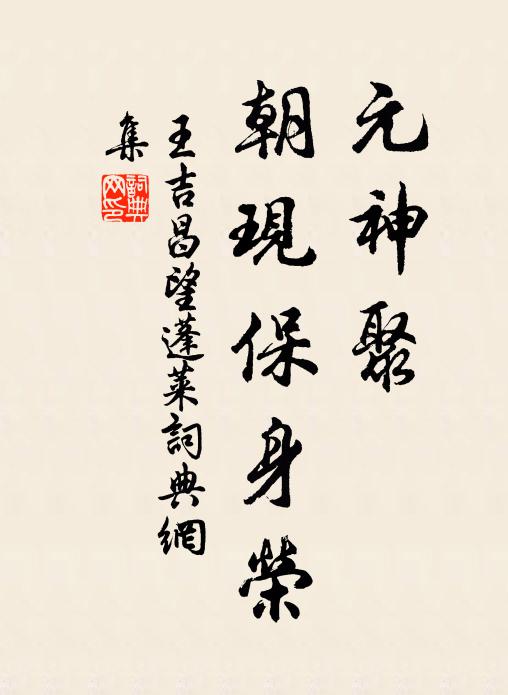 元神聚
朝現保身榮
王吉昌望蓬萊詞典網
集
詞典
网印